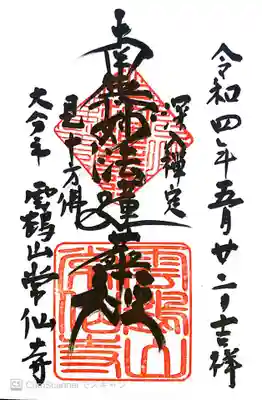 令和四年五月廿二日吉祥
深入禅定
南無妙法蓮華経
見十方佛
大分市 雲鶴山常仙寺
雲鶴山
常仙寺
CamScanner でスキャン